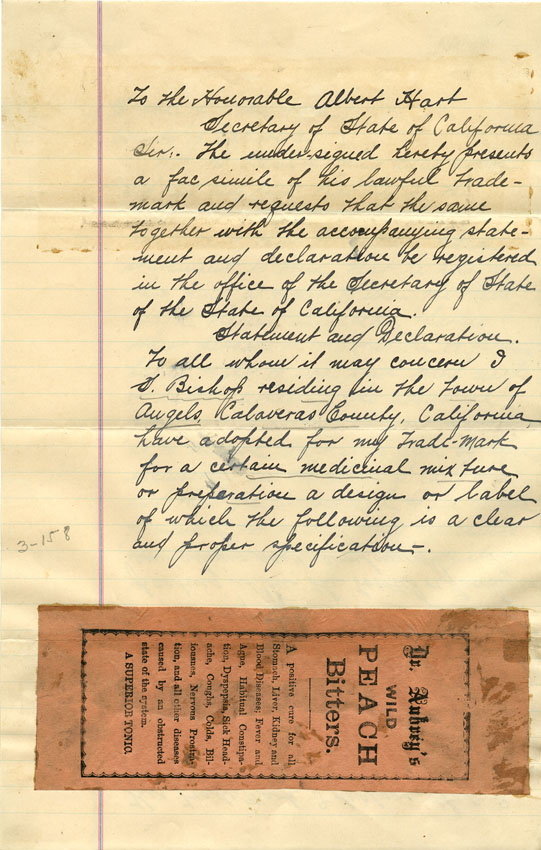 To the Honorable Albert Hart
Secretary of State of California
Sir:. The under-signed hereby presents
a fac simile of his lawful trade-
mark and requests that the same
together with the accompanying state-
ment and declaration be registered
in the office of the Secretary of State
of the State of California.
Statement and Declaration.
To all whom it may concern I
S. Bishop residing in the town of
Angels, Calaveras County, California,
have adopted for my Trade-Mark
for a certain medicinal mixture
or preparation a design or label
of which the following is a clear
and proper specification-.
3-158
Dr. Aubrey's
WILD
PEACH
Bitters.
A positive cure for all
Stomach, Liver, Kidney and
Blood Diseases; Fever and
Ague, Habitual Constipa-
tion, Dyspepsia, Sick Head-
ache, Coughs, Colds, Bil-
iousness, Nervous Prostra-
tion, and all other diseases
caused by an obstructed
state of the system.
A SUPERIOR TONIC.